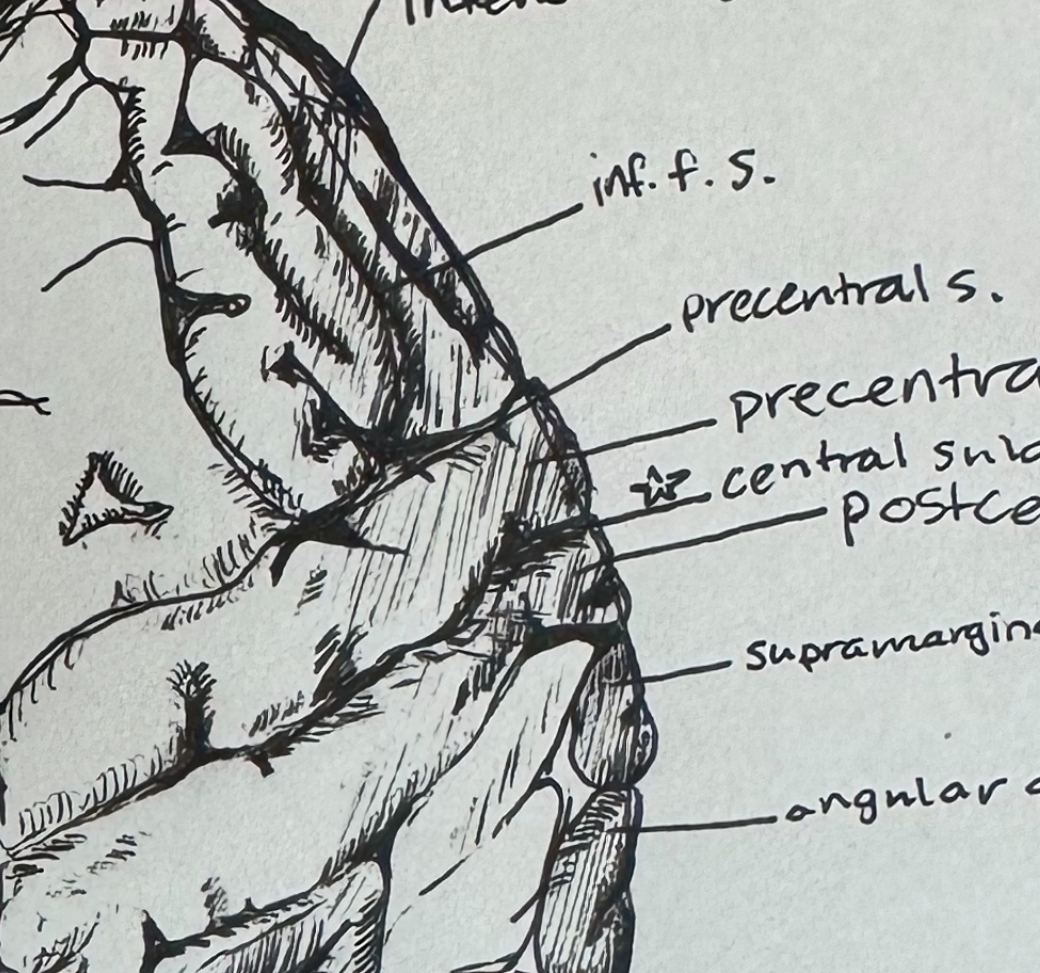 inf. f. s.
precentral s.
precentra
central sulc
postce
supramargin
angular